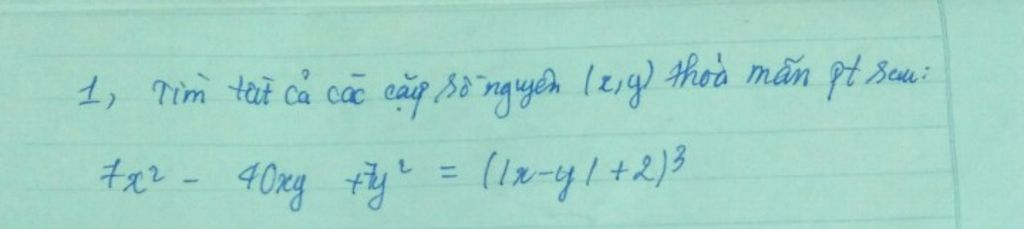 1, Tìm tất cả các cặp số nguyên (x,y) thoả mãn pt sau:
7x² - 40xy + 7y² = (|x-y|+2)³